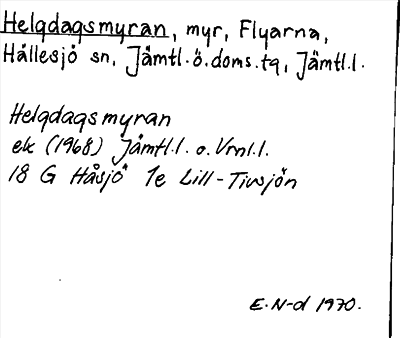 Helgdagsmyran, myr, Flyarna,
Hällesjö sn, Jämtl.ö.doms.tg, Jämtl.l.
Helgdagsmyran
ek (1968) Jämtl.l. o. Vrnl.l.
18 G Håsjö 1e Lill-Tivsjön
E. N-d 1970.